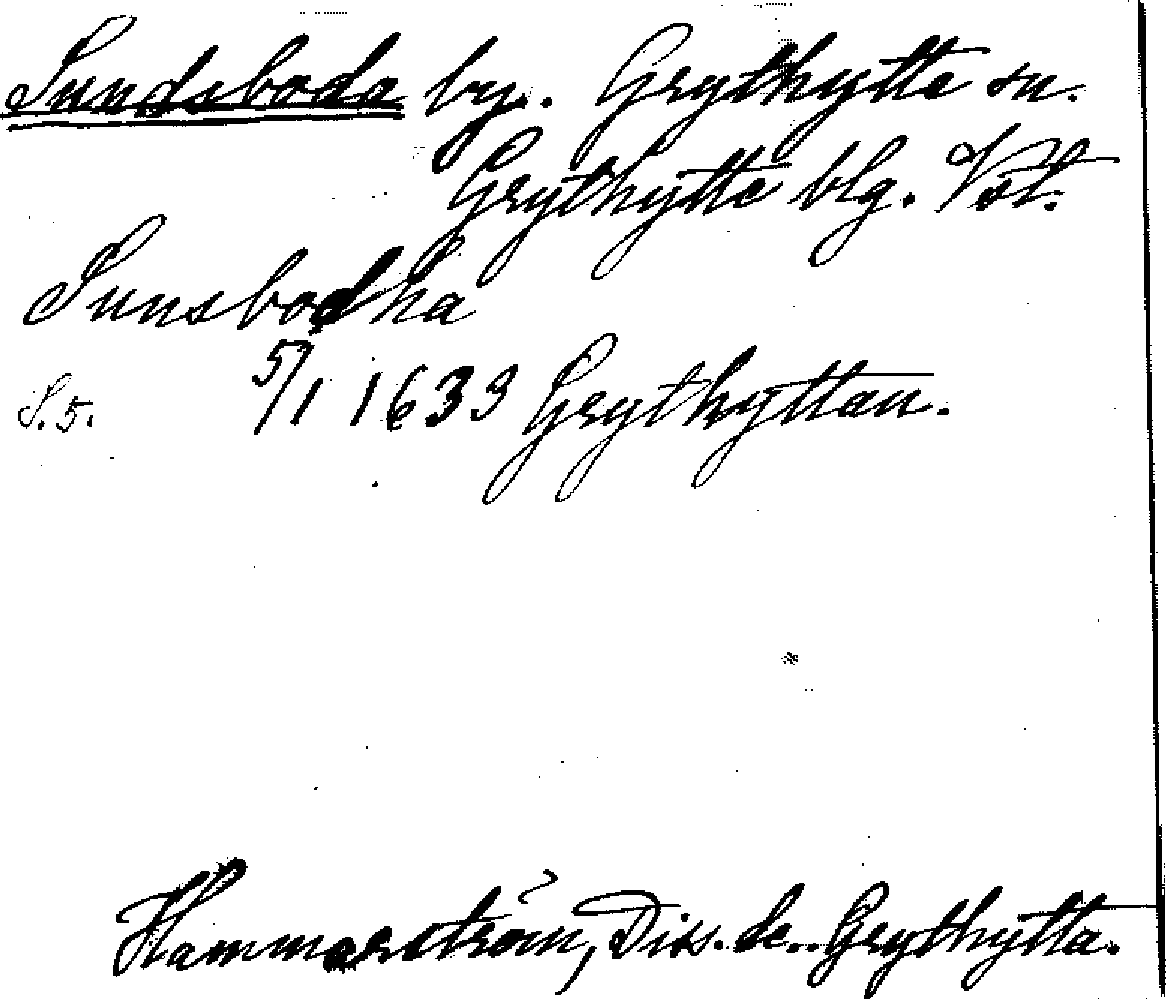 Sundsboda by. Grythytte sn.
Grythytte blg. Vstl.
Sunsbodha
S. 5. 5/1 1633 Grythyttan.
Hammarström, Diss. de. Grythytta.